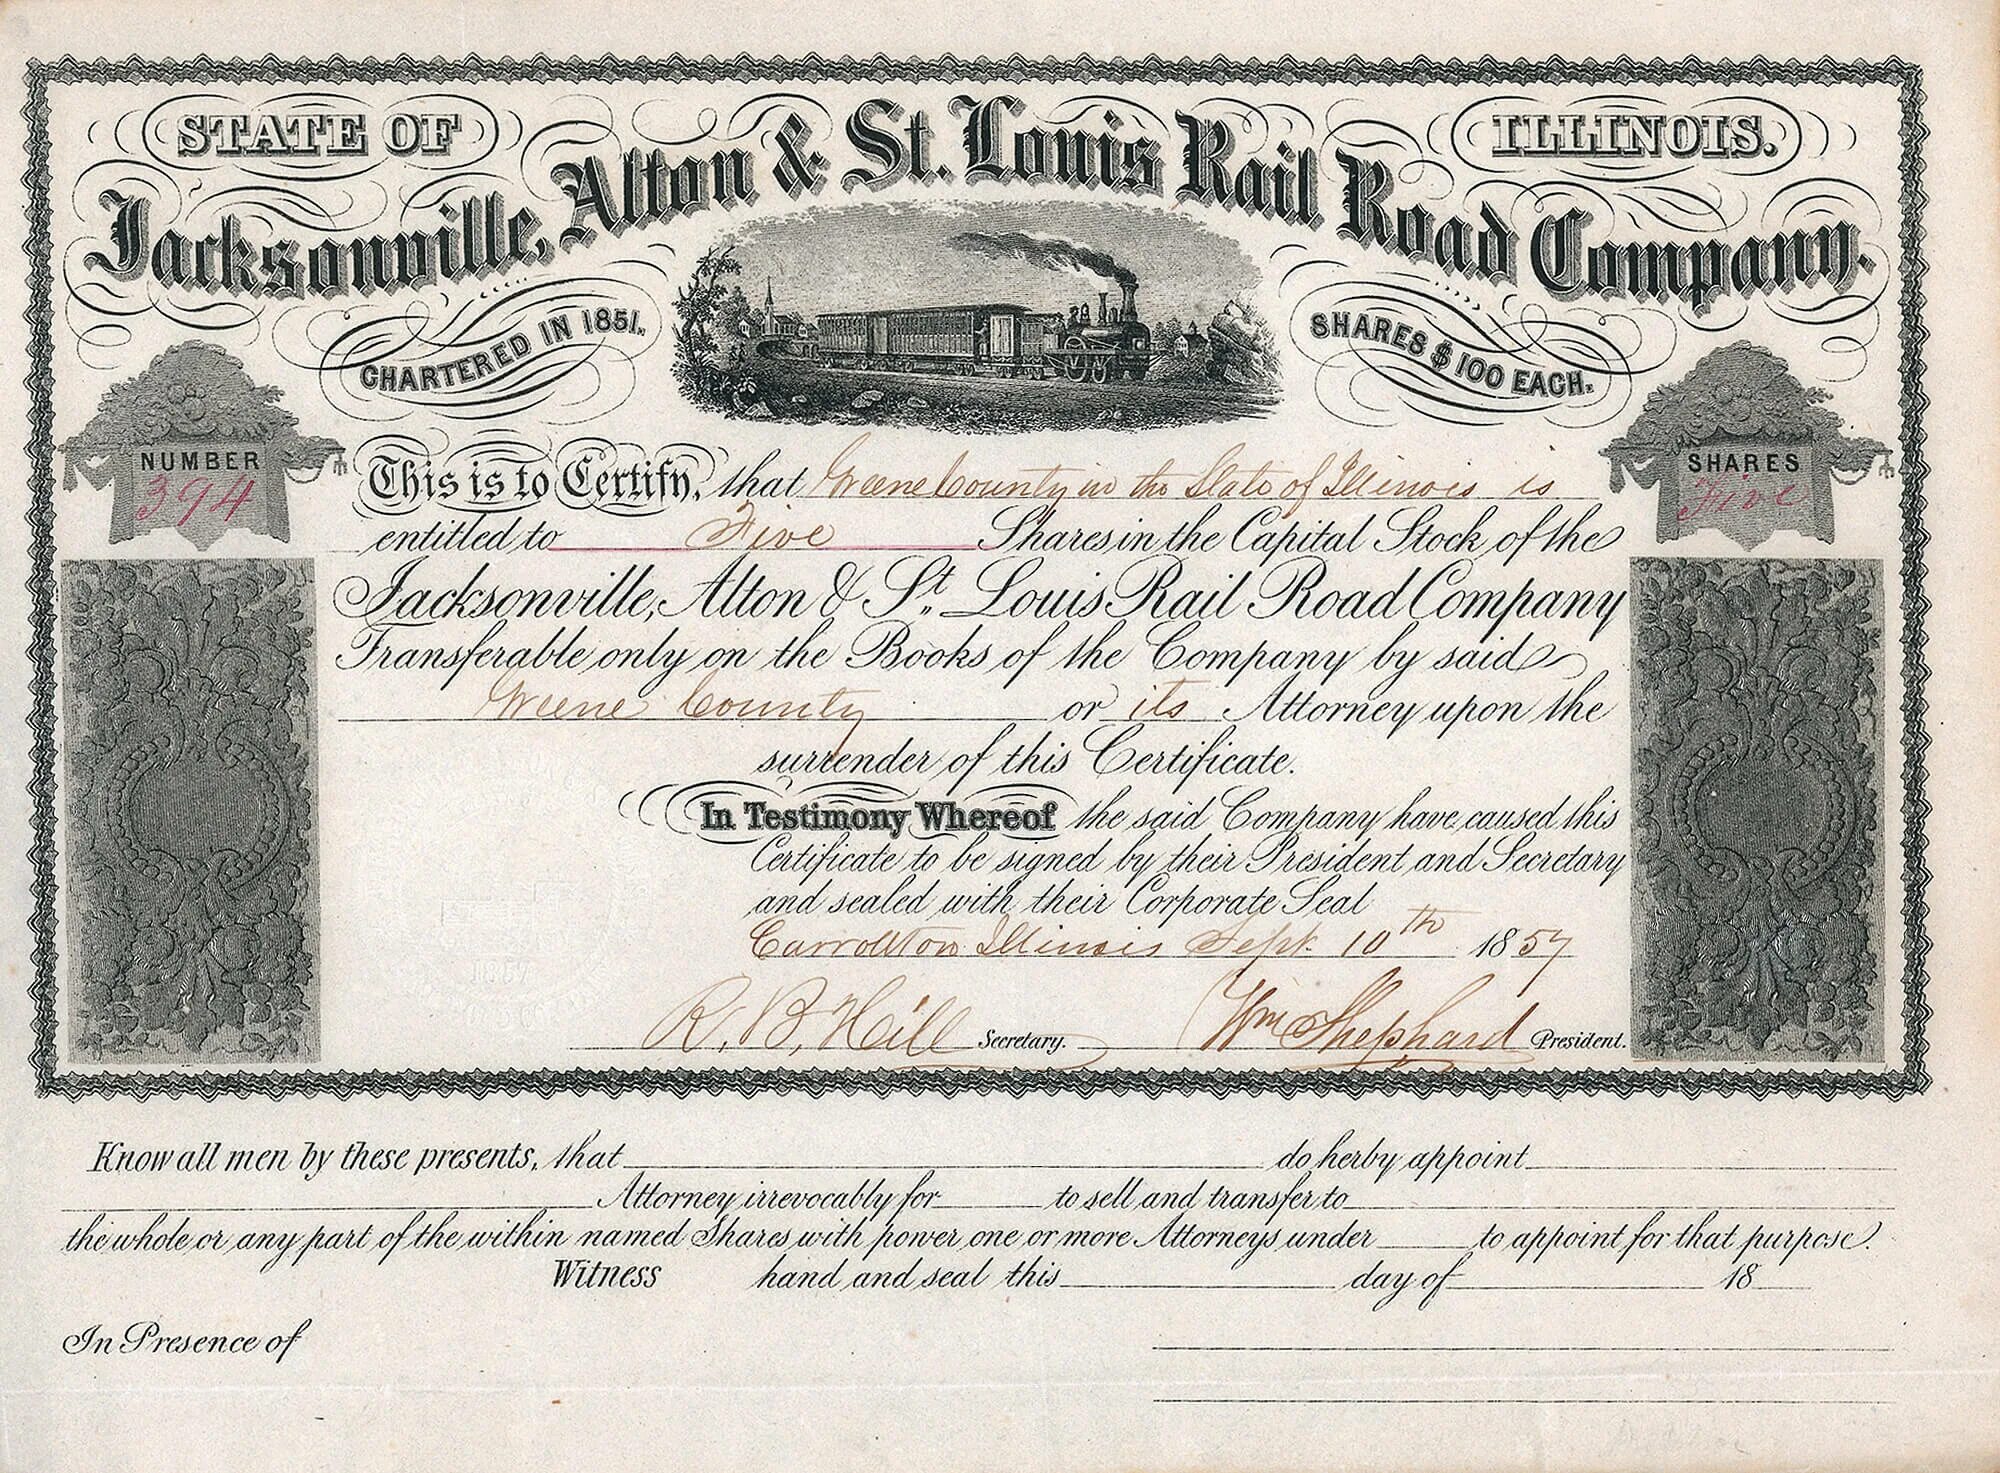 STATE OF
ILLINOIS.
Jacksonville, Alton & St. Louis Rail Road Company.
CHARTERED IN 1851.
SHARES $100 EACH.
NUMBER
394
SHARES
Five
This is to Certify, that Greene County in the State of Illinois is
entitled to Five Shares in the Capital Stock of the
Jacksonville, Alton & St. Louis Rail Road Company
Transferable only on the Books of the Company by said
Greene County or its Attorney upon the
surrender of this Certificate.
In Testimony Whereof the said Company have caused this
Certificate to be signed by their President and Secretary
and sealed with their Corporate Seal
Carrollton Illinois Sept. 10th 1857
1857
R. B. Hill Secretary. Wm Shephard President.
Know all men by these presents, that do herby appoint
Attorney irrevocably for to sell and transfer to
the whole or any part of the within named Shares with power one or more Attorneys under to appoint for that purpose.
Witness hand and seal this day of 18
In Presence of